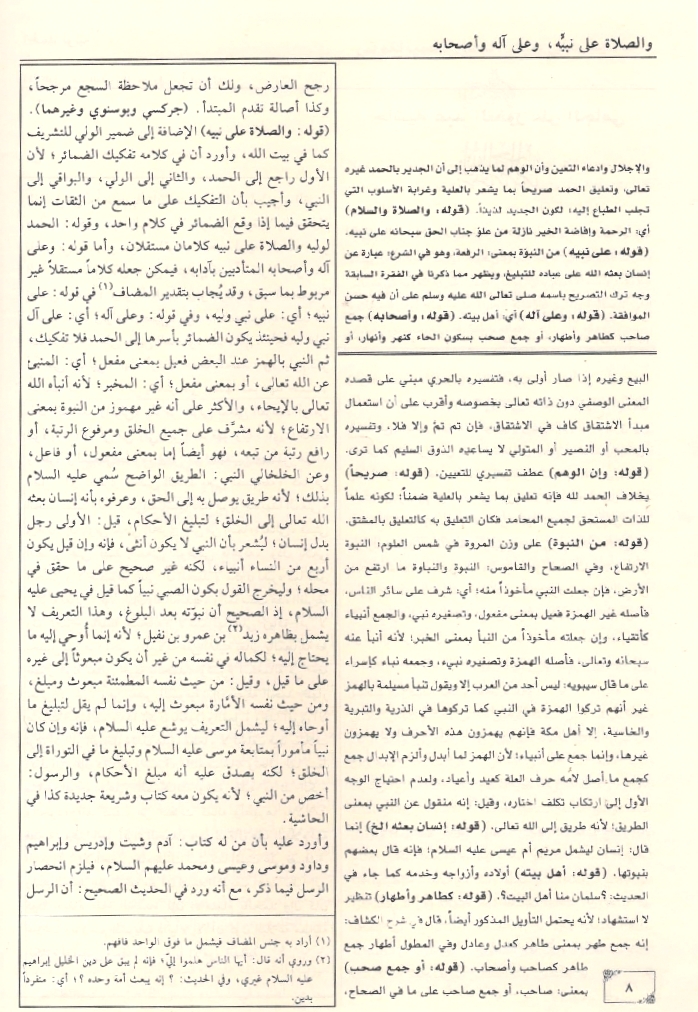 والصلاة على نبيّه، وعلى آله وأصحابه
والإجلال وادعاء التعين وأن الوهم لما يذهب إلى أن الجدير بالحمد غيره
تعالى، وتعليق الحمد صريحاً بما يشعر بالعلية وغرابة الأسلوب التي
تجلب الطباع إليه؛ لكون الجديد لذيذاً. (قوله: والصلاة والسلام)
أي: الرحمة وإفاضة الخير نازلة من علوّ جناب الحق سبحانه على نبيه.
(قوله: على نبيه) من النبوّة بمعنى: الرفعة، وهو في الشرع: عبارة عن
إنسان بعثه الله على عباده للتبليغ، ويظهر مما ذكرنا في الفقرة السابقة
وجه ترك التصريح باسمه صلى تعالى الله عليه وسلم على أن فيه حسن
الموافقة. (قوله: وعلى آله) أي: أهل بيته. (قوله: وأصحابه) جمع
صاحب كطاهر وأطهار، أو جمع صحب بسكون الحاء كنهر وأنهار، أو
البيع وغيره إذا صار أولى به، فتفسيره بالحري مبني على قصده
المعنى الوصفي دون ذاته تعالى بخصوصه وأقرب على أن استعمال
مبدأ الاشتقاق كاف في الاشتقاق، فإن تم تمّ وإلا فلا، وتفسيره
بالمحب أو النصير أو المتولي لا يساعده الذوق السليم كما ترى.
(قوله: وإن الوهم) عطف تفسيري للتعيين. (قوله: صريحاً)
بخلاف الحمد لله فإنه تعليق بما يشعر بالعلية ضمناً؛ لكونه علماً
للذات المستحق لجميع المحامد فكان التعليق به كالتعليق بالمشتق.
(قوله: من النبوة) على وزن المروة في شمس العلوم: النبوة
الارتفاع، وفي الصحاح والقاموس: النبوة والنباوة ما ارتفع من
الأرض، فإن جعلت النبي مأخوذاً منه؛ أي: شرف على سائر الناس،
فأصله غير الهمزة فعيل بمعنى مفعول، وتصغيره نبي، والجمع أنبياء
كأتقياء، وإن جعلته مأخوذاً من النبأ بمعنى الخبر؛ لأنه أنبأ عنه
سبحانه وتعالى، فأصله الهمزة وتصغيره نبيء، وجمعه نباء كإسراء
على ما قال سيبويه: ليس أحد من العرب إلا ويقول تنبأ مسيلمة بالهمز
غير أنهم تركوا الهمزة في النبي كما تركوها في الذرية والبرية
والخاسية، إلا أهل مكة فإنهم يهمزون هذه الأحرف ولا يهمزون
غيرها، وإنما جمع على أنبياء؛ لأن الهمز لما أبدل وألزم الإبدال جمع
كجمع ما أصل لامه حرف العلة كعيد وأعياد، ولعدم احتياج الوجه
الأول إلى ارتكاب تكلف اختاره، وقيل: إنه منقول عن النبي بمعنى
الطريق؛ لأنه طريق إلى الله تعالى. (قوله: إنسان بعثه الخ) إنما
قال: إنسان ليشمل مريم أم عيسى عليه السلام؛ فإنه قال بعضهم
بنبوتها. (قوله: أهل بيته) أولاده وأزواجه وخدمه كما جاء في
الحديث: ؟سلمان منا أهل البيت؟. (قوله: كطاهر وأطهار) تنظير
لا استشهاد؛ لأنه يحتمل التأويل المذكور أيضاً، قال في شرح الكشاف:
إنه جمع طهر بمعنى طاهر كعدل وعادل وفي المطول أطهار جمع
طاهر كصاحب وأصحاب. (قوله: أو جمع صحب)
بمعنى: صاحب، أو جمع صاحب على ما في الصحاح،
رجح العارض، ولك أن تجعل ملاحظة السجع مرجحاً،
وكذا أصالة تقدم المبتدأ. (جركسي وبوسنوي وغيرهما).
(قوله: والصلاة على نبيه) الإضافة إلى ضمير الولي للتشريف
كما في بيت الله، وأورد أن في كلامه تفكيك الضمائر؛ لأن
الأول راجع إلى الحمد، والثاني إلى الولي، والبواقي إلى
النبي، وأجيب بأن التفكيك على ما سمع من الثقات إنما
يتحقق فيما إذا وقع الضمائر في كلام واحد، وقوله: الحمد
لوليه والصلاة على نبيه كلامان مستقلان، وأما قوله: وعلى
آله وأصحابه المتأدبين بآدابه، فيمكن جعله كلاماً مستقلاً غير
مربوط بما سبق، وقد يُجاب بتقدير المضاف(١) في قوله: على
نبيه؛ أي: على نبي وليه، وفي قوله: وعلى آله؛ أي: على آل
نبي وليه فحينئذ يكون الضمائر بأسرها إلى الحمد فلا تفكيك،
ثم النبي بالهمز عند البعض فعيل بمعنى مفعل؛ أي: المنبئ
عن الله تعالى، أو بمعنى مفعل؛ أي: المخبر؛ لأنه أنبأه الله
تعالى بالإيحاء، والأكثر على أنه غير مهموز من النبوة بمعنى
الارتفاع؛ لأنه مشرَّف على جميع الخلق ومرفوع الرتبة، أو
رافع رتبة من تبعه، فهو أيضاً إما بمعنى مفعول، أو فاعل،
وعن الخلخالي النبي: الطريق الواضح سُمي عليه السلام
بذلك؛ لأنه طريق يوصل به إلى الحق، وعرفوه بأنه إنسان بعثه
الله تعالى إلى الخلق؛ لتبليغ الأحكام، قيل: الأولى رجل
بدل إنسان؛ ليُشعر بأن النبي لا يكون أنثى، فإنه وإن قيل يكون
أربع من النساء أنبياء، لكنه غير صحيح على ما حقق في
محله؛ وليخرج القول بكون الصبي نبياً كما قيل في يحيى عليه
السلام، إذ الصحيح أن نبوّته بعد البلوغ، وهذا التعريف لا
يشمل بظاهره زيد(٢) بن عمرو بن نفيل؛ لأنه إنما أُوحي إليه ما
يحتاج إليه؛ لكماله في نفسه من غير أن يكون مبعوثاً إلى غيره
على ما قيل، وقيل: من حيث نفسه المطمئنة مبعوث ومبلغ،
ومن حيث نفسه الأمّارة مبعوث إليه، وإنما لم يقل لتبليغ ما
أوحاه إليه؛ ليشمل التعريف يوشع عليه السلام، فإنه وإن كان
نبياً مأموراً بمتابعة موسى عليه السلام وتبليغ ما في التوراة إلى
الخلق؛ لكنه يصدق عليه أنه مبلغ الأحكام، والرسول:
أخص من النبي؛ لأنه يكون معه كتاب وشريعة جديدة كذا في
الحاشية.
وأورد عليه بأن من له كتاب: آدم وشيت وإدريس وإبراهيم
وداود وموسى وعيسى ومحمد عليهم السلام، فيلزم انحصار
الرسل فيما ذكر، مع أنه ورد في الحديث الصحيح: أن الرسل
(١) أراد به جنس المضاف فيشمل ما فوق الواحد فافهم.
(٢) وروي أنه قال: أيها الناس هلموا إليّ؛ فإنه لم يبق على دين الخليل إبراهيم
عليه السلام غيري، وفي الحديث: ؟ إنه يبعث أمة وحده ؟؛ أي: منفرداً
بدين.
٨